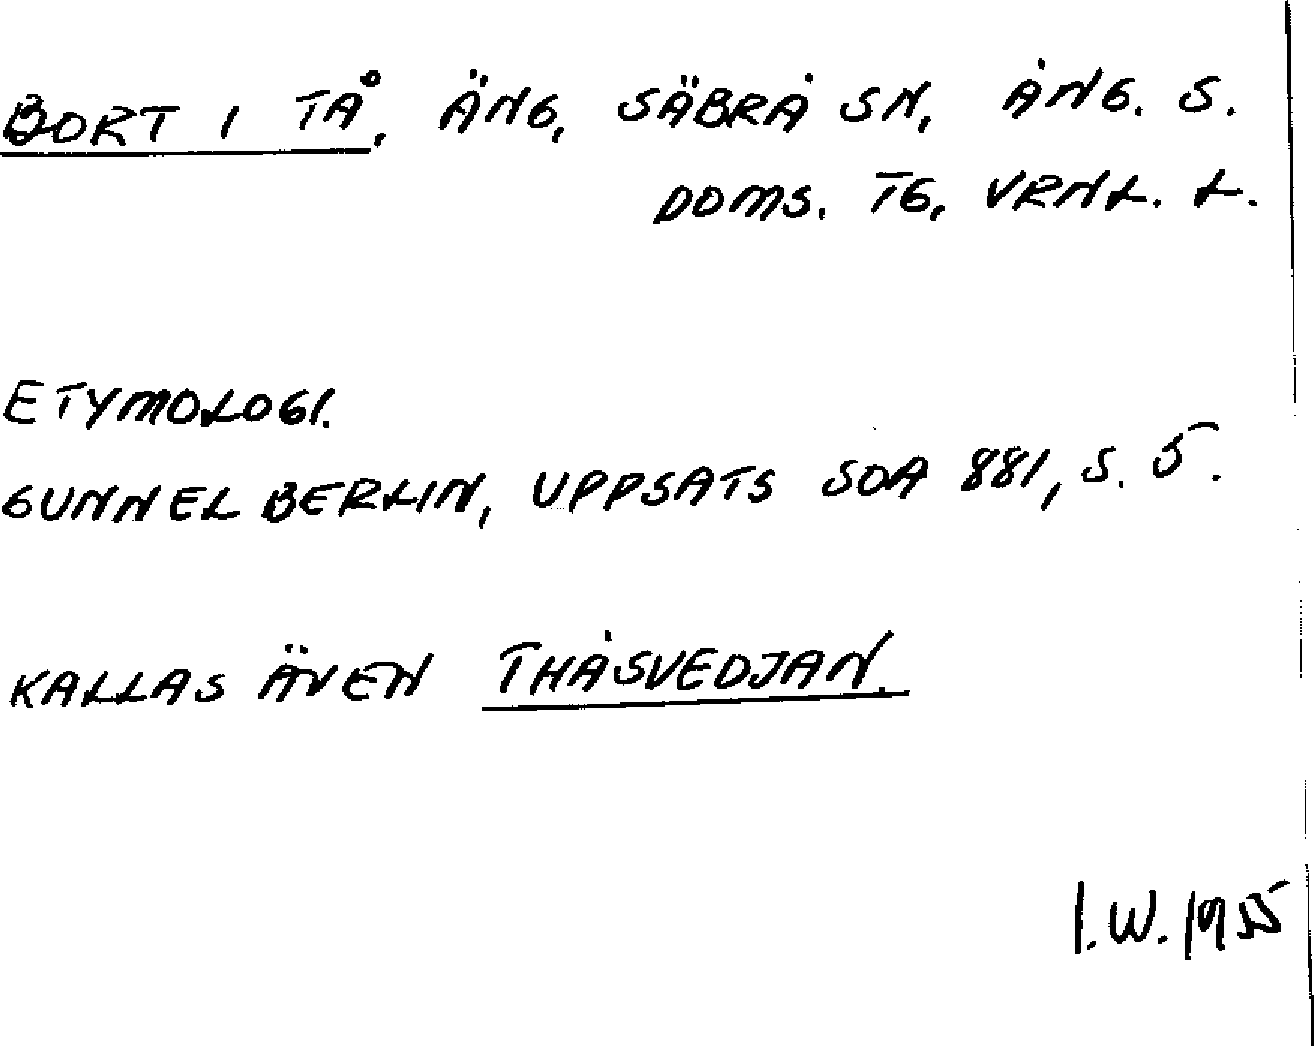 BORT I TÅ, ÄNG, SÄBRÅ SN, ÅNG. S.
DOMS. TG, VRNL. L.
ETYMOLOGI.
GUNNEL BERLIN, UPPSATS SOA 881, S. 5.
KALLAS ÄVEN THÅSVEDJAN.
I.W. 1955